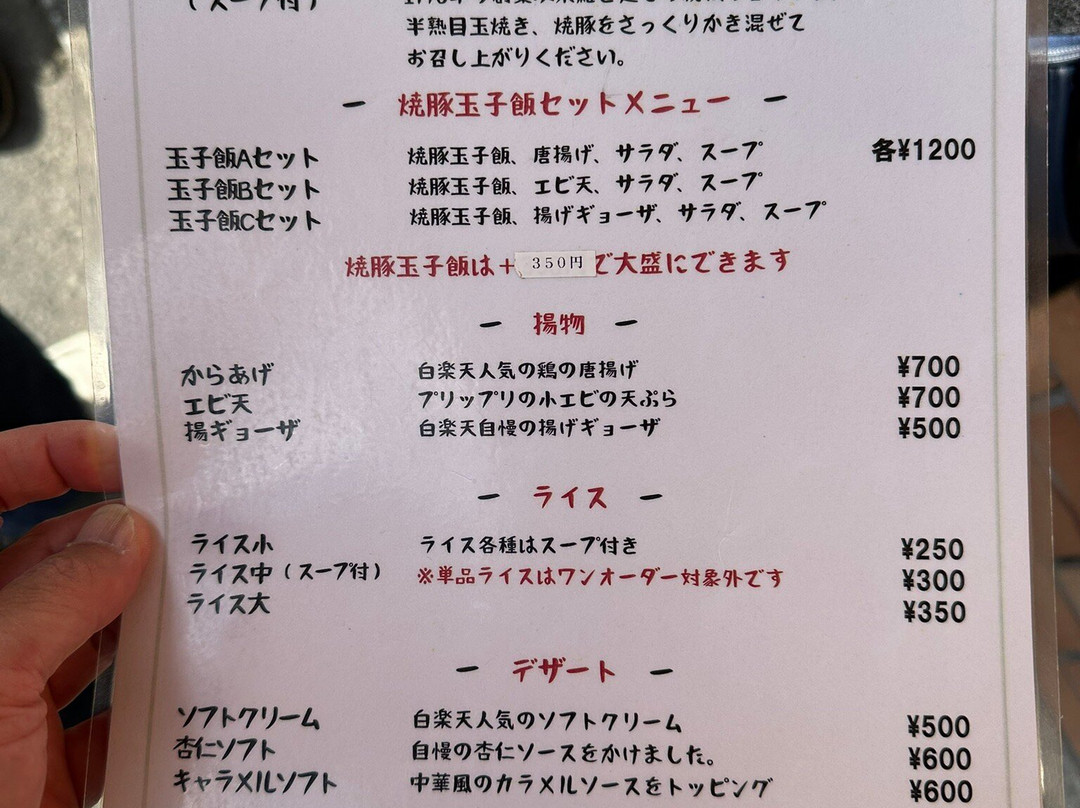 (スープ付)
半熟目玉焼き、焼豚をさっくりかき混ぜて
お召し上がりください。
ー 焼豚玉子飯セットメニュー ー
玉子飯Aセット 焼豚玉子飯、唐揚げ、サラダ、スープ 各¥1200
玉子飯Bセット 焼豚玉子飯、エビ天、サラダ、スープ
玉子飯Cセット 焼豚玉子飯、揚げギョーザ、サラダ、スープ
焼豚玉子飯は+350円で大盛にできます
ー 揚物 ー
からあげ 白楽天人気の鶏の唐揚げ ¥700
エビ天 プリップリの小エビの天ぷら ¥700
揚ギョーザ 白楽天自慢の揚げギョーザ ¥500
ー ライス ー
ライス小 ライス各種はスープ付き ¥250
ライス中(スープ付) ※単品ライスはワンオーダー対象外です ¥300
ライス大 ¥350
ー デザート ー
ソフトクリーム 白楽天人気のソフトクリーム ¥500
杏仁ソフト 自慢の杏仁ソースをかけました。 ¥600
キャラメルソフト 中華風のカラメルソースをトッピング ¥600